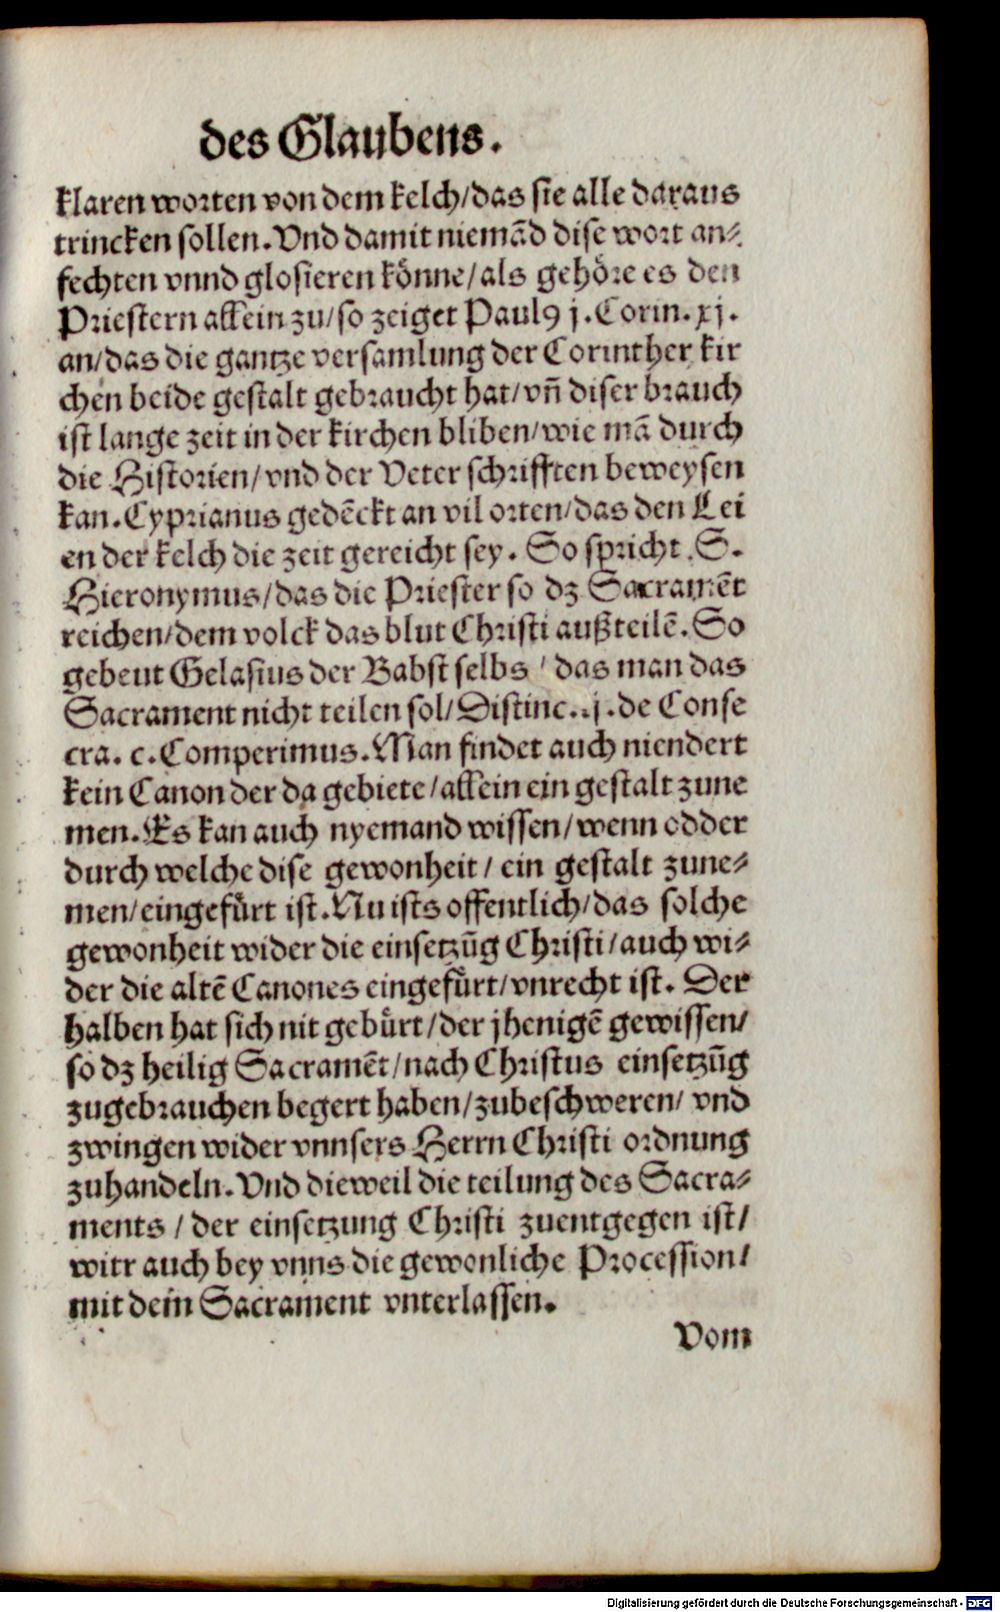 des Glaubens.
klaren worten von dem kelch/das sie alle daraus
trincken sollen.Vnd damit niemãd dise wort an⸗
fechten vnnd glosieren könne/als gehöre es den
Priestern allein zu/so zeiget Paulꝰ j.Corin.xj.
an/das die gantze versamlung der Corinther kir
chen beide gestalt gebraucht hat/vñ diser brauch
ist lange zeit in der kirchen bliben/wie mã durch
die Historien/vnd der Veter schrifften beweysen
kan.Cyprianus gedẽckt an vil orten/das den Lei
en der kelch die zeit gereicht sey. So spricht .S.
Hieronymus/das die Priester so dz Sacramẽt
reichen/dem volck das blut Christi außteilẽ.So
gebeut Gelasius der Babst selbs / das man das
Sacrament nicht teilen sol/Distinc..ij.de Conse
cra. c.Comperimus.Man findet auch niendert
kein Canon der da gebiete/allein ein gestalt zune
men.Es kan auch nyemand wissen/wenn odder
durch welche dise gewonheit/ ein gestalt zune⸗
men/eingefürt ist.Nu ists offentlich/das solche
gewonheit wider die einsetzũg Christi/auch wi⸗
der die altẽ Canones eingefürt/vnrecht ist. Der
halben hat sich nit gebürt/der jhenigẽ gewissen/
so dz heilig Sacramẽt/nach Christus einsetzũg
zugebrauchen begert haben/zubeschweren/ vnd
zwingen wider vnnsers Herrn Christi ordnung
zuhandeln.Vnd dieweil die teilung des Sacra⸗
ments / der einsetzung Christi zuentgegen ist/
witr auch bey vnns die gewonliche Procession/
mit dem Sacrament vnterlassen.
Vom
Digitalisierung gefördert durch die Deutsche Forschungsgemeinschaft - DFG